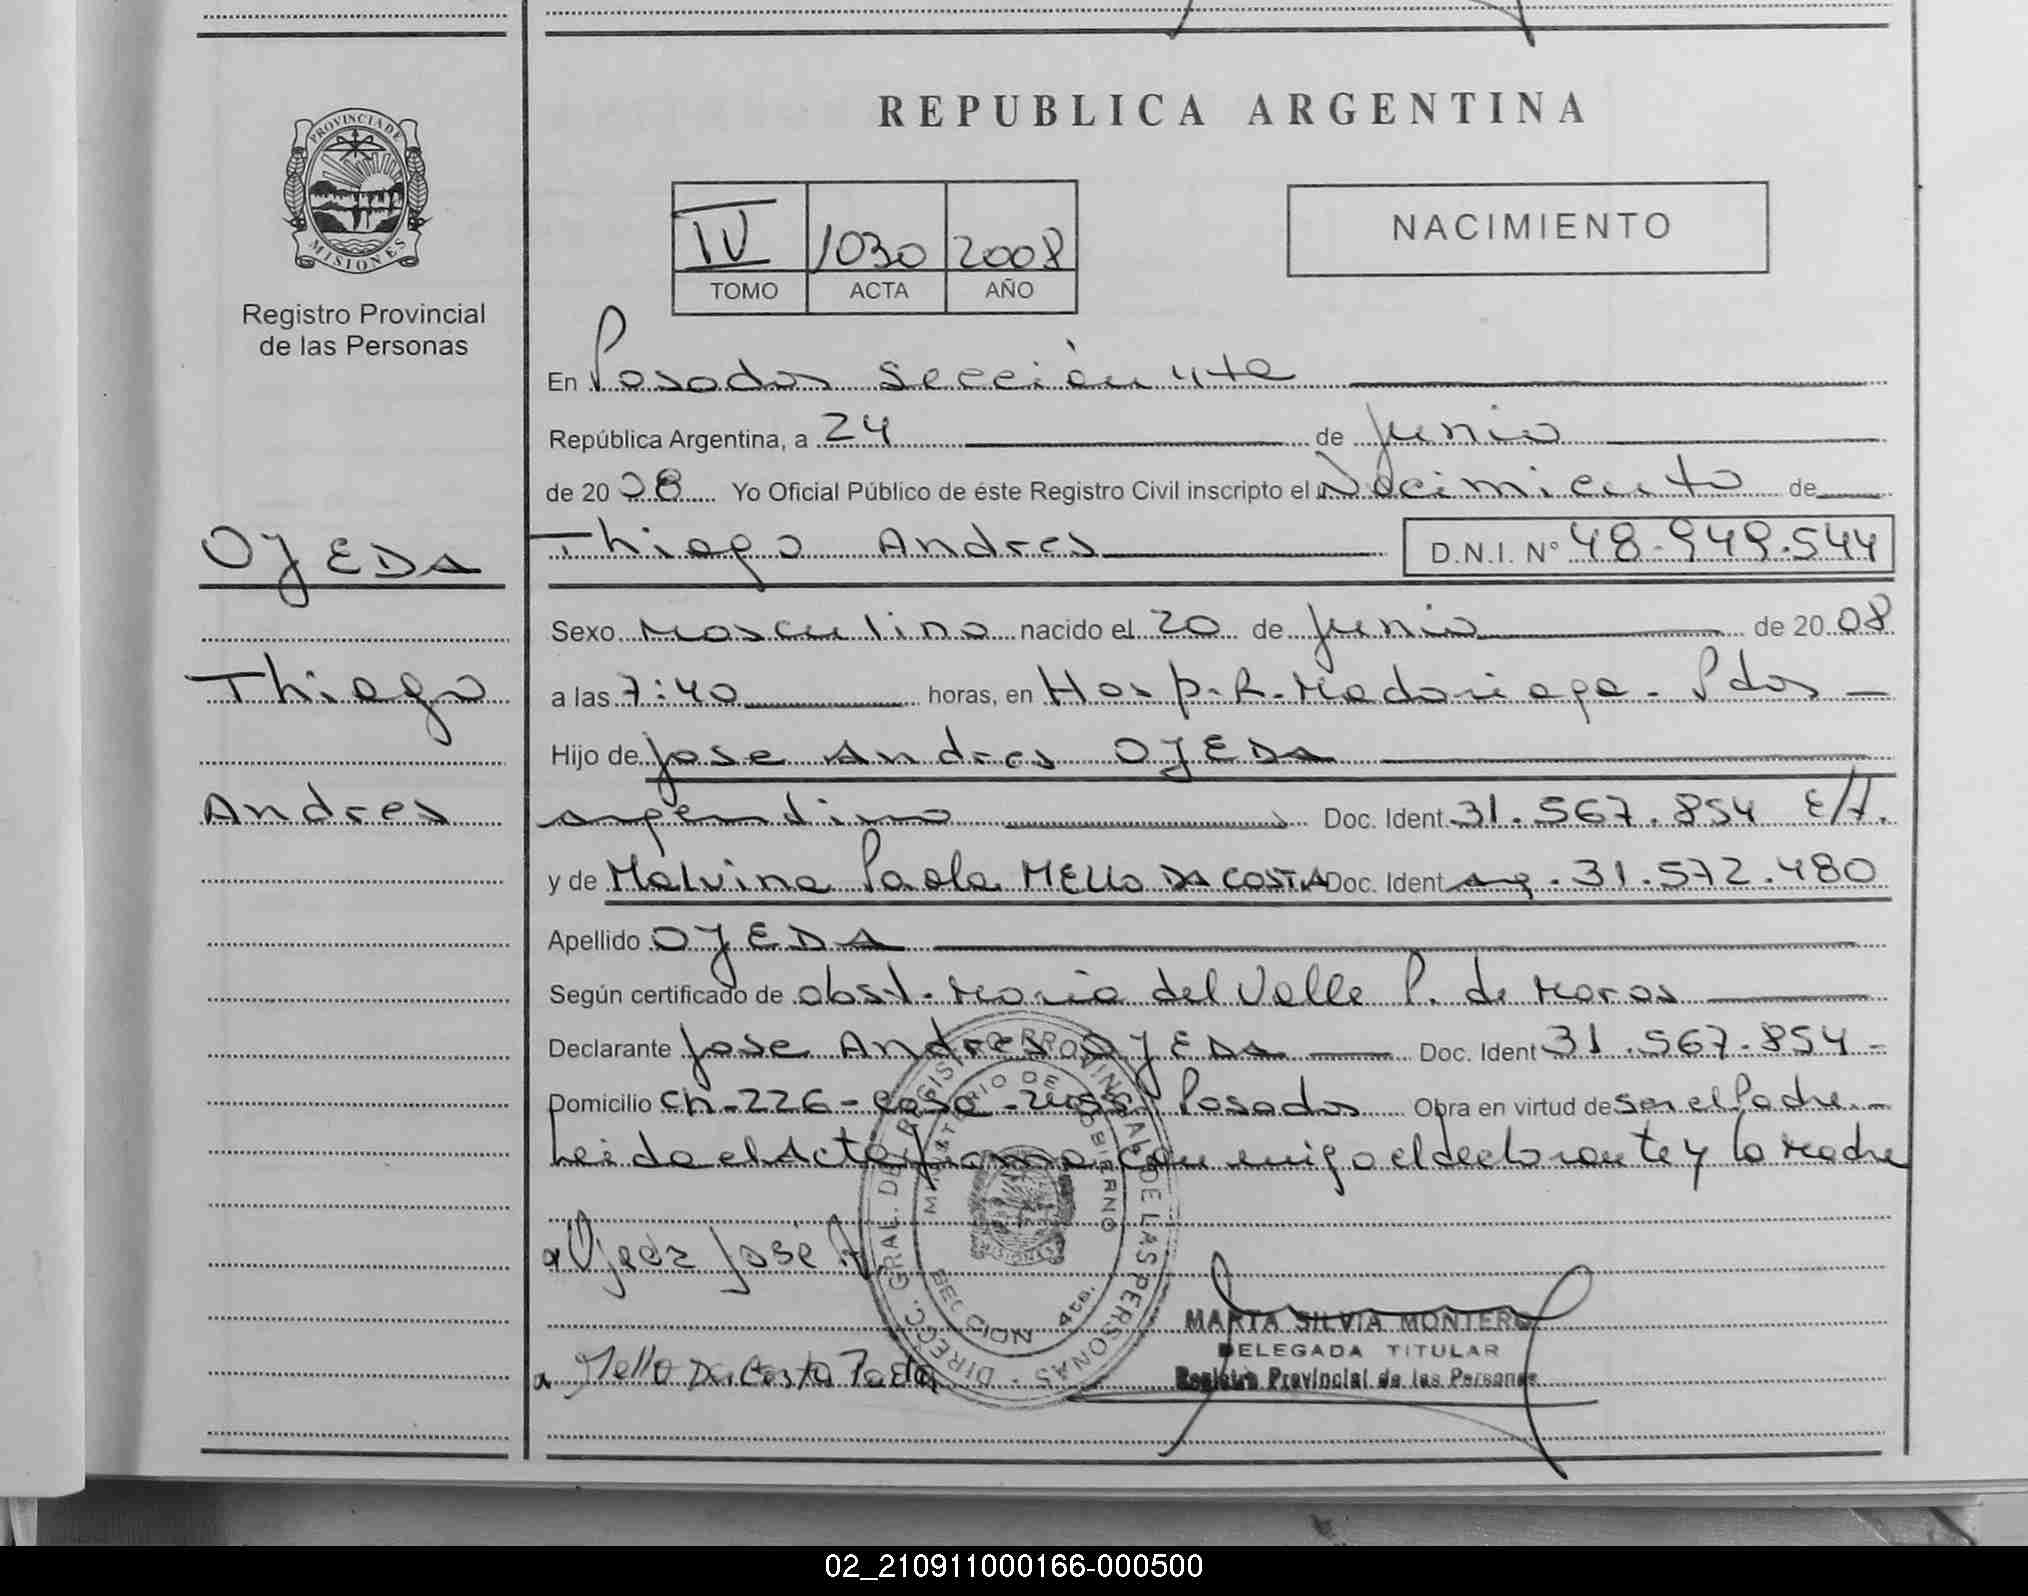 PROVINCIA DE
MISIONES
Registro Provincial
de las Personas
OJEDA
Thiago
Andres
REPUBLICA ARGENTINA
IV 1030 2008
TOMO ACTA AÑO
NACIMIENTO
En Posadas Sección 4ta
República Argentina, a 24 de Junio
de 20 08 Yo Oficial Público de éste Registro Civil inscripto el Nacimiento de
Thiago Andres D.N.I. Nº 48.949.544
Sexo Masculino nacido el 20 de Junio de 20 08
a las 7:40 horas, en Hosp. R. Madariaga - Pdas -
Hijo de Jose Andres OJEDA
argentino Doc. Ident 31.567.854 E/T.
y de Malvina Paola MELLO DA COSTA Doc. Ident arg. 31.572.480
Apellido OJEDA
Según certificado de obst. Maria del Valle P. de Moras
Declarante Jose Andres OJEDA Doc. Ident 31.567.854 -
Domicilio Ch-226-casa- Posadas Obra en virtud de ser el Padre.-
Leida el Acta firma con migo el declarante y la Madre
Ojeda José A
Mello Da Costa Paola
DIRECC. GRAL. DEL REGISTRO PROVINCIAL DE LAS PERSONAS
MINISTERIO DE GOBIERNO
MARTA SILVIA MONTERO
DELEGADA TITULAR
Registro Provincial de las Personas
02_210911000166-000500